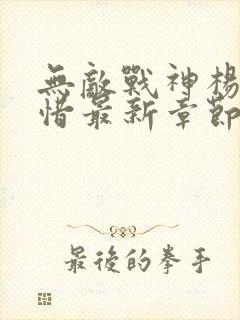 無敵戰神楊
惜最新章節
最後的拳手